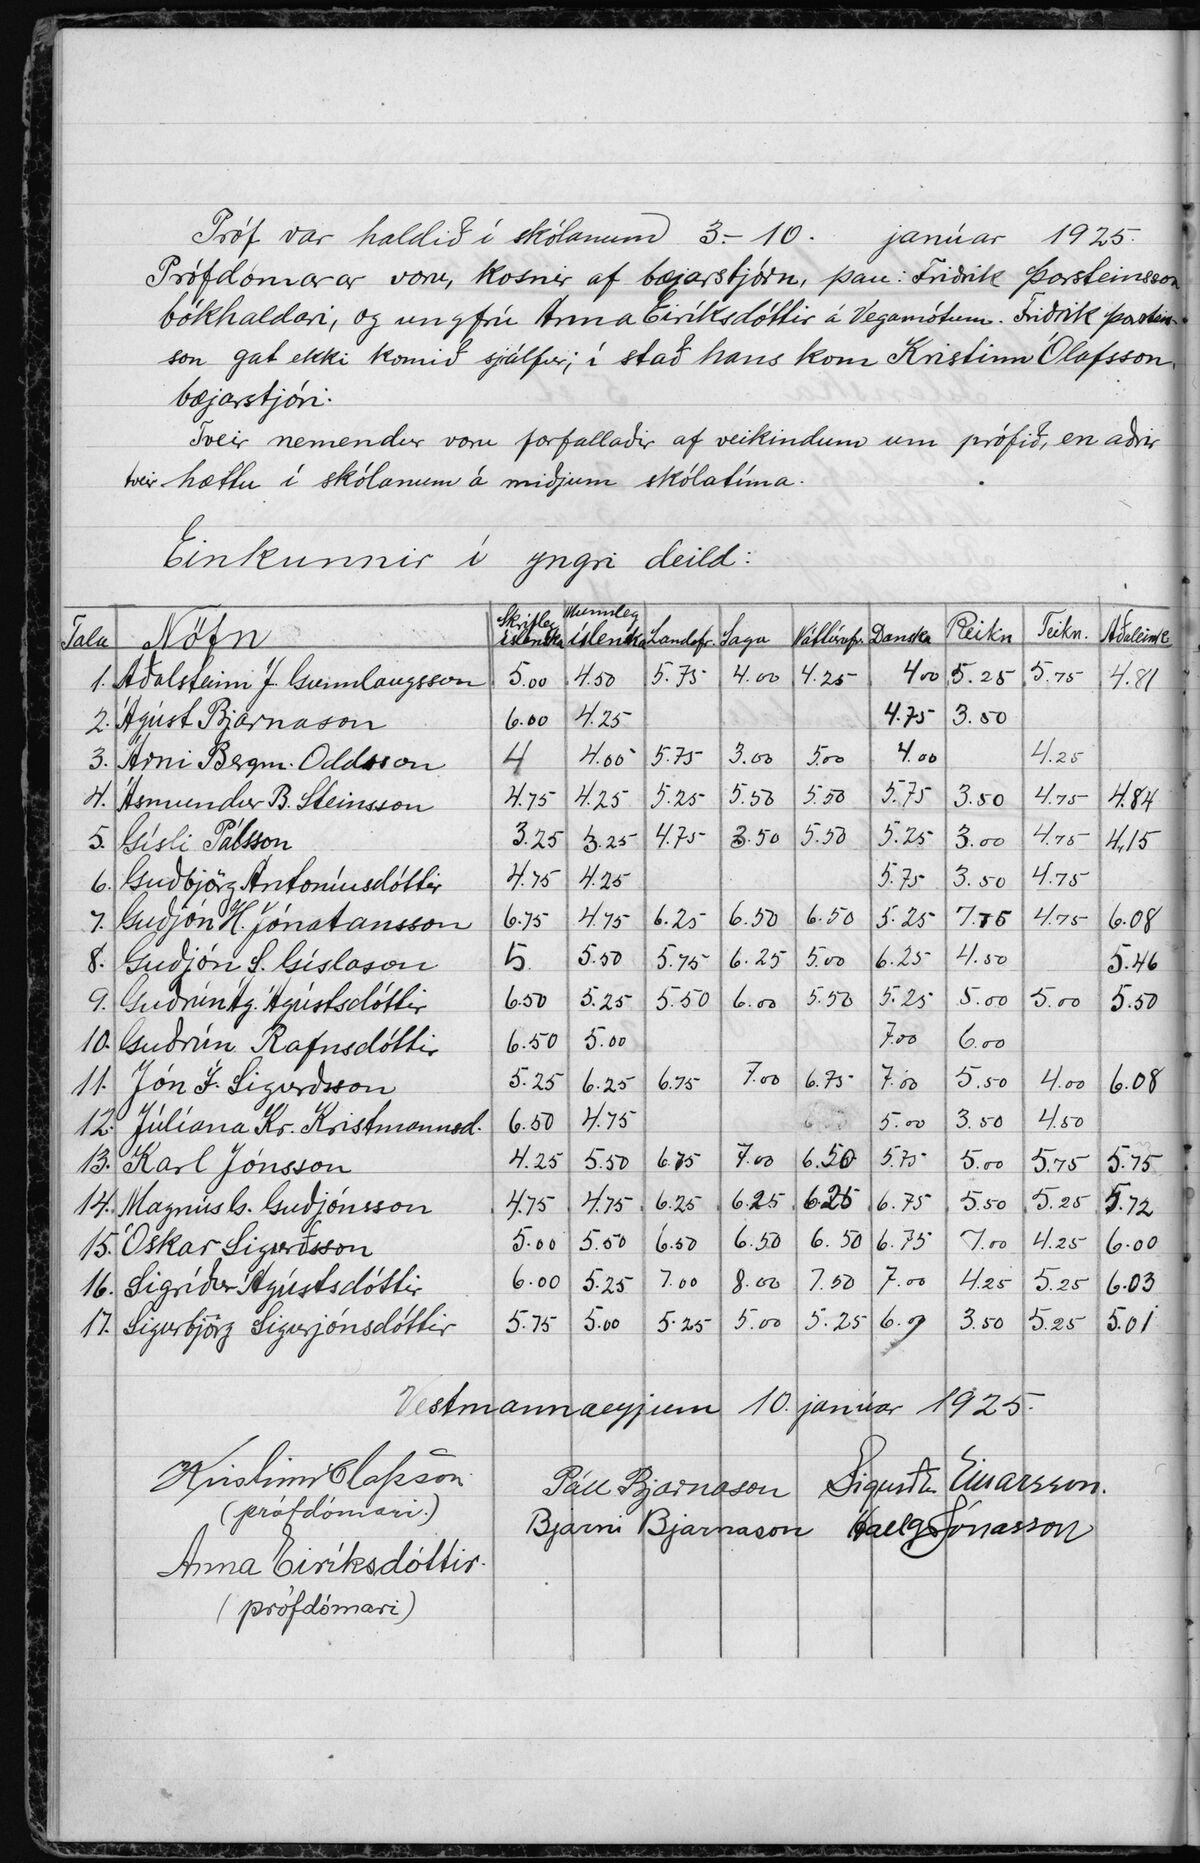 Próf var haldið í skólanum 3.-10. janúar 1925.
Prófdómarar voru, kosnir af bæjarstjórn, þau: Friðrik Þorsteinsson
bókhaldari, og ungfrú Anna Eiríksdóttir á Vegamótum. Friðrik Þorsteins-
son gat ekki komið sjálfur; í stað hans kom Kristinn Ólafsson
bæjarstjóri.
Tveir nemendur voru forfallaðir af veikindum um prófið, en aðrir
tveir hættu í skólanum á miðjum skólatíma.
Einkunnir í yngri deild:
Tala Nöfn Skrifleg íslenska Munnleg íslenska Landafr. Saga Náttúrufr. Danska Reikn Teikn. Aðaleink
1. Aðalsteinn J. Gunnlaugsson 5.00 4.50 5.75 4.00 4.25 4.00 5.25 5.75 4.81
2. Ágúst Bjarnason 6.00 4.25 4.75 3.50
3. Árni Bergm. Oddsson 4 4.00 5.75 3.00 5.00 4.00 4.25
4. Ásmundur B. Steinsson 4.75 4.25 5.25 5.50 5.50 5.75 3.50 4.75 4.84
5. Gísli Pálsson 3.25 3.25 4.75 3.50 5.50 5.25 3.00 4.75 4.15
6. Guðbjörg Antoníusdóttir 4.75 4.25 5.75 3.50 4.75
7. Guðjón H. Jónatansson 6.75 4.75 6.25 6.50 6.50 5.25 7.75 4.75 6.08
8. Guðjón S. Gíslason 5 5.50 5.75 6.25 5.00 6.25 4.50 5.46
9. Guðrún Ág. Ágústsdóttir 6.50 5.25 5.50 6.00 5.50 5.25 5.00 5.00 5.50
10. Guðrún Rafnsdóttir 6.50 5.00 7.00 6.00
11. Jón Í. Sigurðsson 5.25 6.25 6.75 7.00 6.75 7.00 5.50 4.00 6.08
12. Júlíana Kr. Kristmannsd. 6.50 4.75 5.00 3.50 4.50
13. Karl Jónsson 4.25 5.50 6.75 7.00 6.50 5.75 5.00 5.75 5.75
14. Magnús G. Guðjónsson 4.75 4.75 6.25 6.25 6.25 6.75 5.50 5.25 5.72
15. Óskar Sigurðsson 5.00 5.50 6.50 6.50 6.50 6.75 7.00 4.25 6.00
16. Sigríður Ágústsdóttir 6.00 5.25 7.00 8.00 7.50 7.00 4.25 5.25 6.03
17. Sigurbjörg Sigurjónsdóttir 5.75 5.00 5.25 5.00 5.25 3.50 5.25 5.01
Vestmannaeyjum 10. janúar 1925.
Kristinn Ólafsson Páll Bjarnason Einarsson.
(prófdómari.) Bjarni Bjarnason Jónasson
Anna Eiríksdóttir.
(prófdómari)